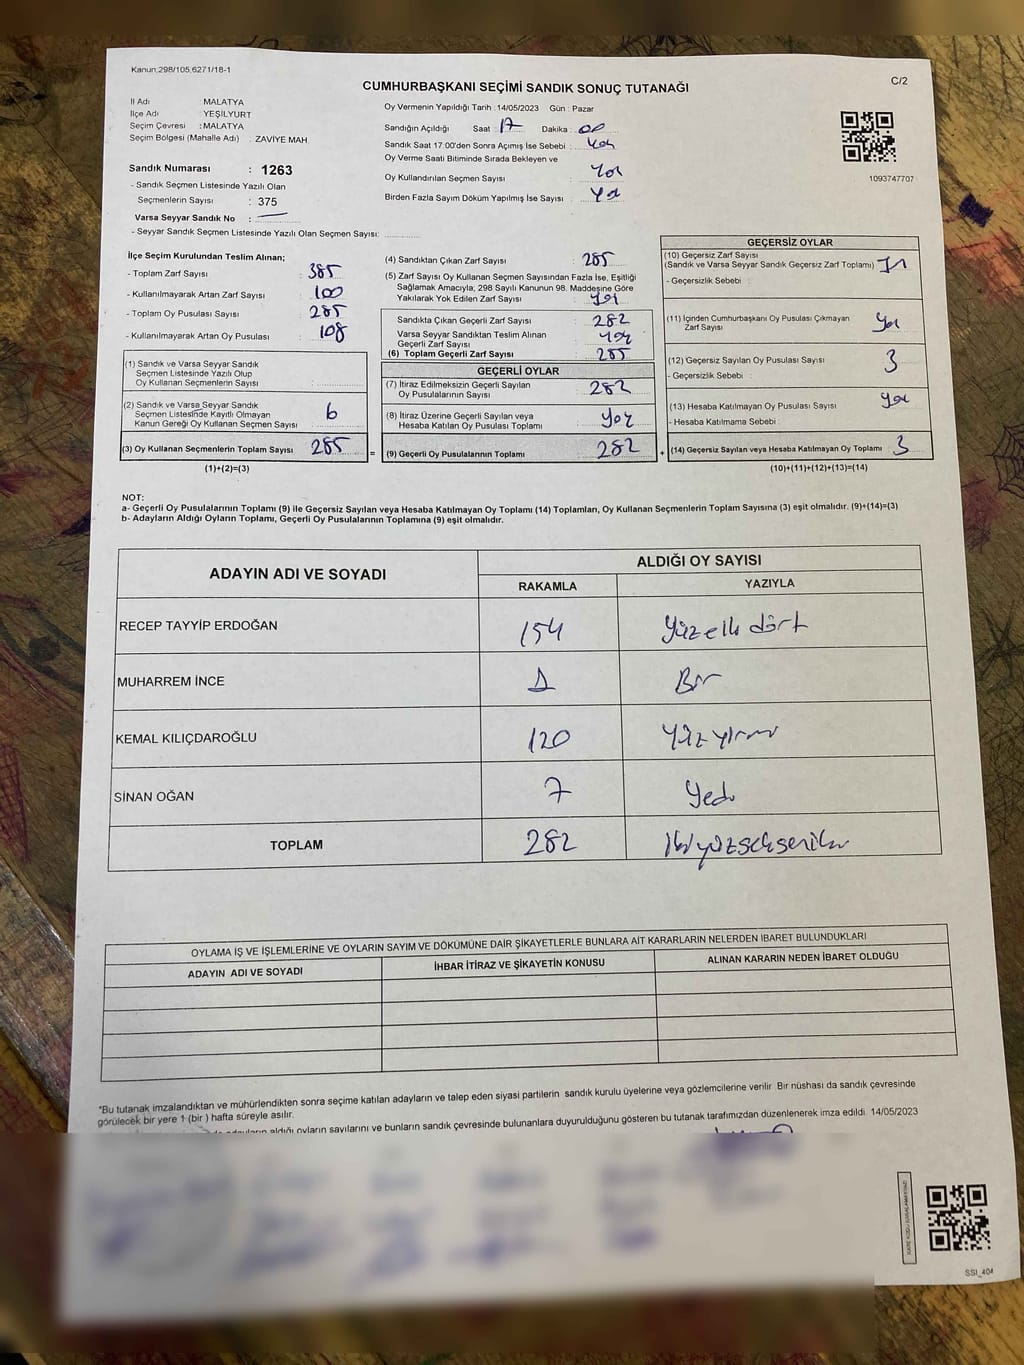 Kanun.298/105,6271/18-1
CUMHURBAŞKANI SEÇİMİ SANDIK SONUÇ TUTANAĞI
C/2
İl Adı MALATYA
İlçe Adı YEŞİLYURT
Seçim Çevresi : MALATYA
Seçim Bölgesi (Mahalle Adı) : ZAVİYE MAH
Sandık Numarası : 1263
- Sandık Seçmen Listesinde Yazılı Olan
Seçmenlerin Sayısı : 375
Varsa Seyyar Sandık No :
- Seyyar Sandık Seçmen Listesinde Yazılı Olan Seçmen Sayısı:
Oy Vermenin Yapıldığı Tarih : 14/05/2023 Gün : Pazar
Sandığın Açıldığı Saat : 17 Dakika : 00
Sandık Saat 17:00'den Sonra Açımış İse Sebebi : Yok
Oy Verme Saati Bitiminde Sırada Bekleyen ve
Oy Kullandırılan Seçmen Sayısı : Yok
Birden Fazla Sayım Döküm Yapılmış İse Sayısı : Yok
1093747707
İlçe Seçim Kurulundan Teslim Alınan;
- Toplam Zarf Sayısı : 385
- Kullanılmayarak Artan Zarf Sayısı : 100
- Toplam Oy Pusulası Sayısı : 285
- Kullanılmayarak Artan Oy Pusulası : 108
(1) Sandık ve Varsa Seyyar Sandık
Seçmen Listesinde Yazılı Olup
Oy Kullanan Seçmenlerin Sayısı :
(2) Sandık ve Varsa Seyyar Sandık
Seçmen Listesinde Kayıtlı Olmayan
Kanun Gereği Oy Kullanan Seçmen Sayısı : 6
(3) Oy Kullanan Seçmenlerin Toplam Sayısı : 285
(1)+(2)=(3)
(4) Sandıktan Çıkan Zarf Sayısı : 285
(5) Zarf Sayısı Oy Kullanan Seçmen Sayısından Fazla İse, Eşitliği
Sağlamak Amacıyla; 298 Sayılı Kanunun 98. Maddesine Göre
Yakılarak Yok Edilen Zarf Sayısı : Yok
Sandıkta Çıkan Geçerli Zarf Sayısı : 282
Varsa Seyyar Sandıktan Teslim Alınan
Geçerli Zarf Sayısı : Yok
(6) Toplam Geçerli Zarf Sayısı : 285
GEÇERLİ OYLAR
(7) İtiraz Edilmeksizin Geçerli Sayılan
Oy Pusulasının Sayısı : 282
(8) İtiraz Üzerine Geçerli Sayılan veya
Hesaba Katılan Oy Pusulası Toplamı : Yok
= (9) Geçerli Oy Pusulalarının Toplamı : 282
GEÇERSİZ OYLAR
(10) Geçersiz Zarf Sayısı
(Sandık ve Varsa Seyyar Sandık Geçersiz Zarf Toplamı)
- Geçersizlik Sebebi :
(11) İçinden Cumhurbaşkanı Oy Pusulası Çıkmayan
Zarf Sayısı : Yok
(12) Geçersiz Sayılan Oy Pusulası Sayısı : 3
- Geçersizlik Sebebi :
(13) Hesaba Katılmayan Oy Pusulası Sayısı : Yok
- Hesaba Katılmama Sebebi :
+ (14) Geçersiz Sayılan veya Hesaba Katılmayan Oy Toplamı : 3
(10)+(11)+(12)+(13)=(14)
NOT:
a- Geçerli Oy Pusulalarının Toplamı (9) ile Geçersiz Sayılan veya Hesaba Katılmayan Oy Toplamı (14) Toplamları, Oy Kullanan Seçmenlerin Toplam Sayısına (3) eşit olmalıdır. (9)+(14)=(3)
b- Adayların Aldığı Oyların Toplamı, Geçerli Oy Pusulalarının Toplamına (9) eşit olmalıdır.
ADAYIN ADI VE SOYADI
ALDIĞI OY SAYISI
RAKAMLA YAZIYLA
RECEP TAYYİP ERDOĞAN 154 Yüzelli dört
MUHARREM İNCE 1 Bir
KEMAL KILIÇDAROĞLU 120 Yüz yirmi
SİNAN OĞAN 7 Yedi
TOPLAM 282 İkiyüzsekseniki
OYLAMA İŞ VE İŞLEMLERİNE VE OYLARIN SAYIM VE DÖKÜMÜNE DAİR ŞİKAYETLERLE BUNLARA AİT KARARLARIN NELERDEN İBARET BULUNDUKLARI
ADAYIN ADI VE SOYADI İHBAR İTİRAZ VE ŞİKAYETİN KONUSU ALINAN KARARIN NEDEN İBARET OLDUĞU
*Bu tutanak imzalandıktan ve mühürlendikten sonra seçime katılan adayların ve talep eden siyasi partilerin sandık kurulu üyelerine veya gözlemcilerine verilir Bir nüshası da sandık çevresinde
görülecek bir yere 1 (bir ) hafta süreyle asılır.
aldığı oyların sayılarını ve bunların sandık çevresinde bulunanlara duyurulduğunu gösteren bu tutanak tarafımızdan düzenlenerek imza edildi. 14/05/2023
SSI_404